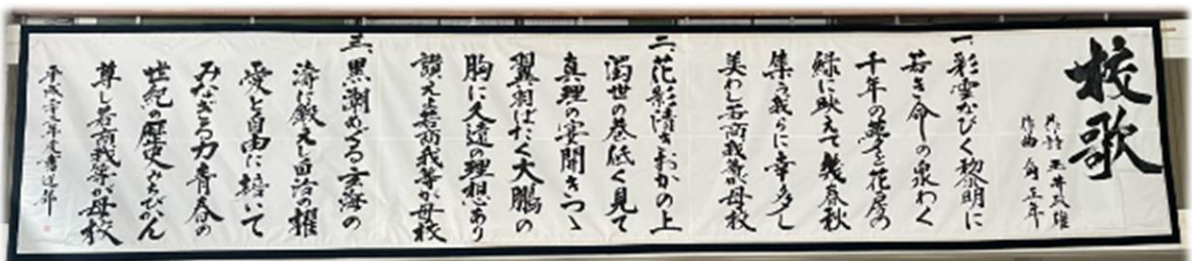 校歌
作詩 玉井政雄
作曲 角 正年
一、彩雲なびく黎明に
若き命の泉わく
千年の夢を花房の
緑に映えて幾春秋
集う我らに幸多し
美わし若商我等が母校
二、花影清きおかの上
濁世の巷低く見て
真理の窓開きつゝ
翼羽ばたく大鵬の
胸に久遠の理想あり
讃えよ若商我等が母校
三、黒潮めぐる玄海の
濤に鍛えし自治の櫂
愛と自由に
みなぎる力青春の
世紀の歴史みちびかん
尊し若商我等が母校
平成二十七年度書道部